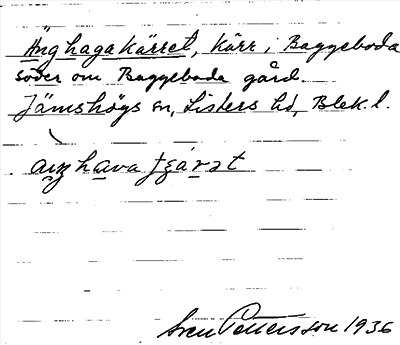 Änghagakärret, Kärr i Baggeboda
söder om Baggeboda gård.
Jämshögs sn, Listers hd, Blek. l.
Sven Pettersson 1936